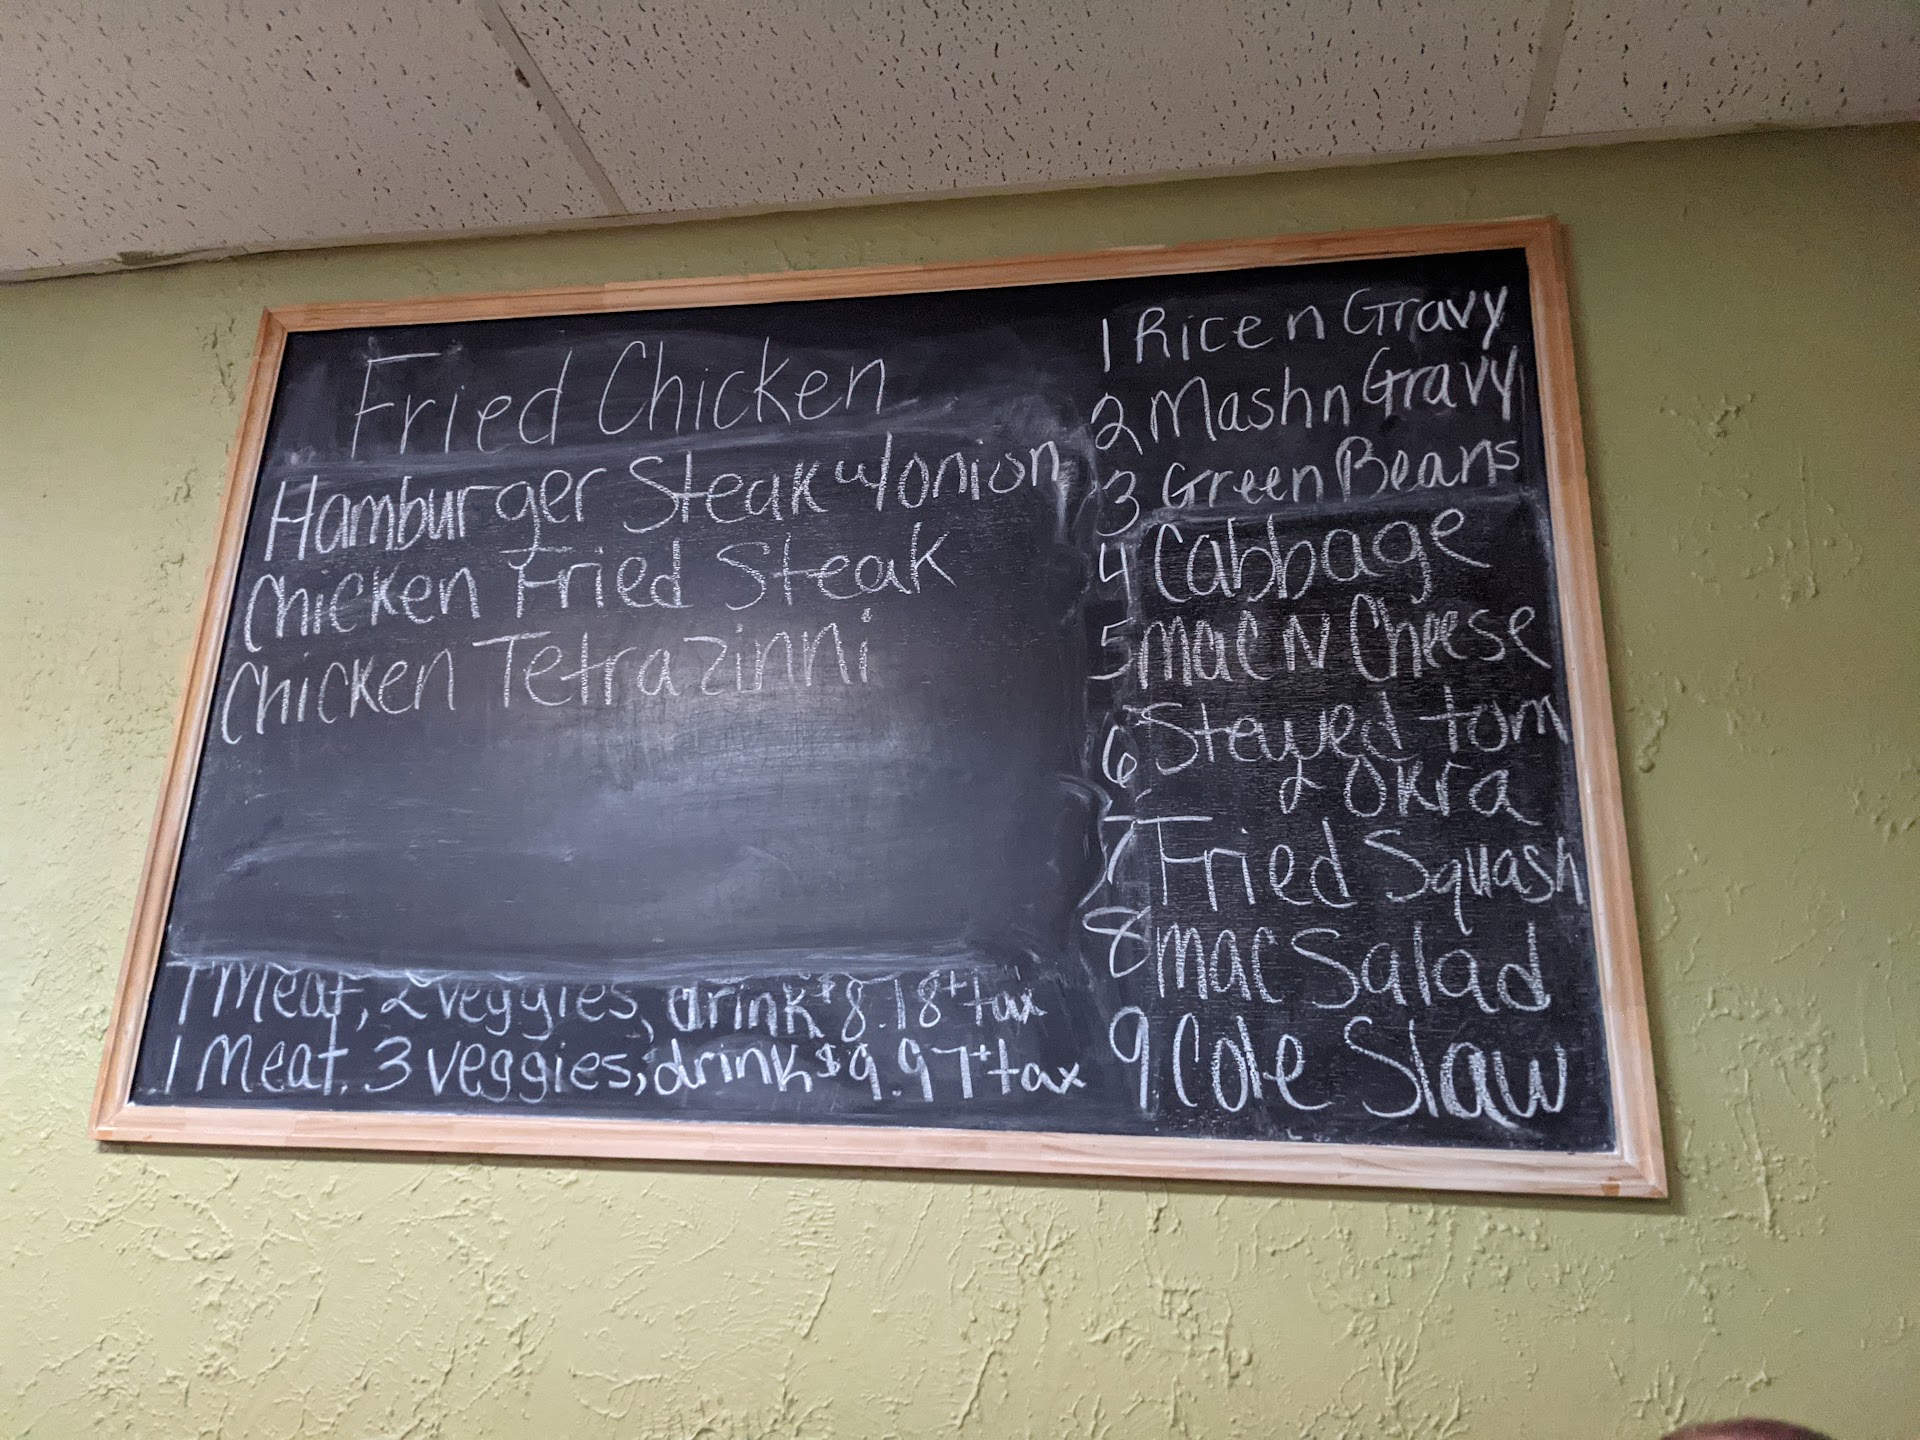 Fried Chicken
Hamburger Steak w/onion
Chicken Fried Steak
Chicken Tetrazinni
1 Meat, 2 veggies, drink $8.18+tax
1 Meat, 3 veggies, drink $9.97+tax
1 Rice n Gravy
2 Mash n Gravy
3 Green Beans
4 Cabbage
5 Mac N Cheese
6 Stewed tom
& Okra
7 Fried Squash
8 Mac Salad
9 Cole Slaw